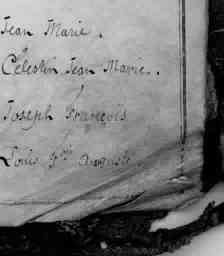 Jean Marie.
Célestin Jean Marie.
Joseph François
Louis Auguste.